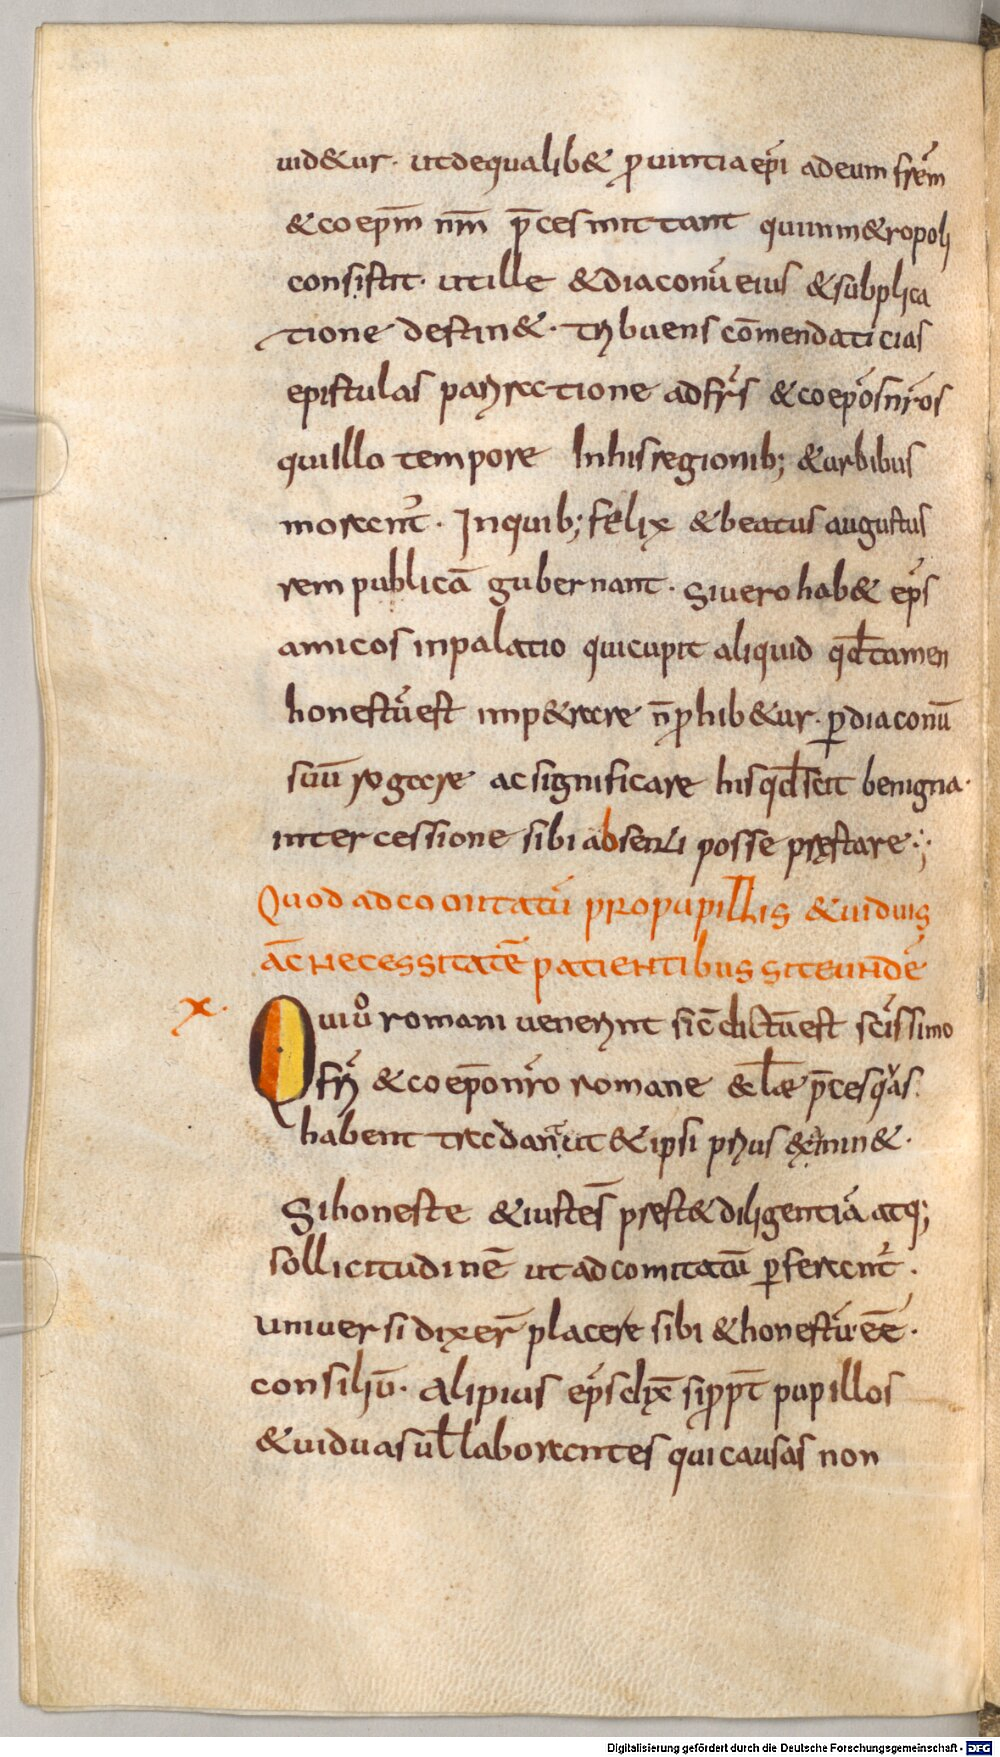 uid&ur· utdequalib& ꝓuintia ep̄i adeum frēm
& coepm̄ nr̄m p̄ces mittant quiinm&ropoli
consistit· utille &diaconū eius &subplica
tione destin&· tribuens cōmendaticias
epistulas pari rectione adfr̄s &coepōs nr̄os
quiillo tempore Inhis regionib; &urbibus
morant̄· Inquib; felix &beatus augustus
rem publicā gubernant· Siuero hab& ep̄s
amicos inpalatio quicupit aliquid qd̄tamen
honestū est imp&rare n̄ꝓhib&ur· ꝑdiaconū
suū rogare ac significare his qd̄scit benigna·
intercessione sibi absenti posse pręstare·;
Quod adcomitatū pro pupillis &uiduis
ac̄ necessitatē patientibus sit eundē
x·
Quiu᷎o romam uenerint sic̄ dictūest sc̄issimo
fri &coep̄o nr̄o romane &ccl̄ae p̄ces quas·
habent tradant̄ ut &ipsi prius exanim&·
Sihoneste &iustes̄ prest& diligentiā atq;
sollicitudinē ut adcomitatū ꝑferant̄·
uniuersi dixer̄ placere sibi &honestū eē·
consiliū· Alipius ep̄s dix̄ sippt̄ pupillos
&uiduas ul̄ laborantes qui causas non
Digitalisierung gefördert durch die Deutsche Forschungsgemeinschaft - DFG